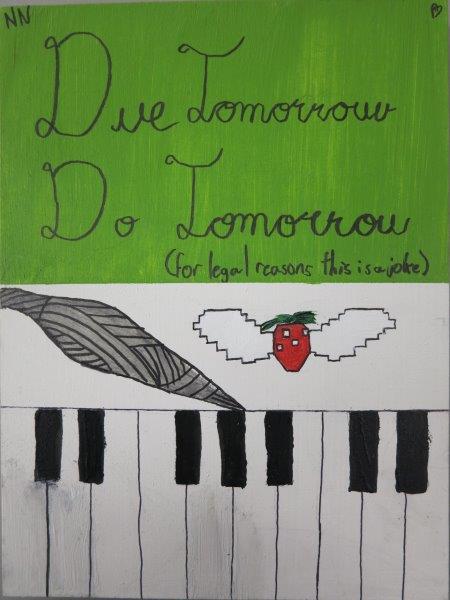 NN
Due Tomorrow
Do Tomorrow
(for legal reasons this is a joke)